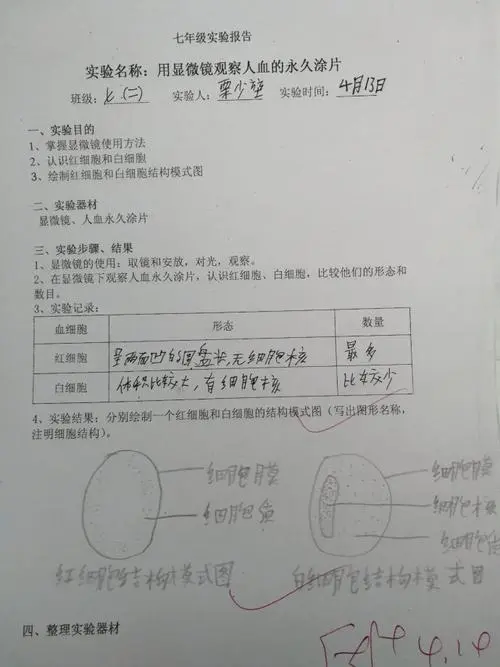 七年级实验报告
实验名称：用显微镜观察人血的永久涂片
班级：七(二) 实验人：栗少 实验时间：4月13日
一、实验目的
1、掌握显微镜使用方法
2、认识红细胞和白细胞
3、绘制红细胞和白细胞结构模式图
二、实验器材
显微镜、人血永久涂片
三、实验步骤、结果
1、显微镜的使用：取镜和安放，对光，观察。
2、在显微镜下观察人血永久涂片，认识红细胞、白细胞，比较他们的形态和
数目。
3、实验记录：
血细胞 形态 数量
红细胞 呈两面凹的圆盘状,无细胞核 最多
白细胞 体积比较大,有细胞核 比较少
4、实验结果：分别绘制一个红细胞和白细胞的结构模式图（写出图形名称，
注明细胞结构）。
细胞膜 细胞膜
细胞质 细胞核
细胞质
红细胞结构模式图 白细胞结构模式图
四、整理实验器材
4.14